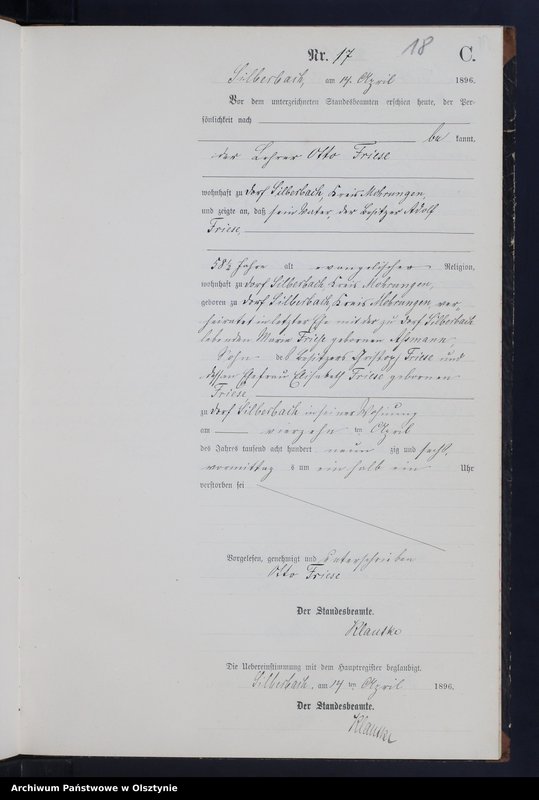 18
Nr. 17 C.
Silberbach, am 14. April 1896.
Vor dem unterzeichneten Standesbeamten erschien heute, der Per-
sönlichkeit nach
be kannt,
der Lehrer Otto Friese
wohnhaft zu Dorf Silberbach, Kreis Mohrungen,
und zeigte an, daß sein Vater, der Besitzer Adolf
Friese,
58½ Jahre alt evangelischer Religion,
wohnhaft zu Dorf Silberbach, Kreis Mohrungen,
geboren zu Dorf Silberbach, Kreis Mohrungen, ver-
heiratet in letzter Ehe mit der zu Dorf Silberbach
lebenden Marie Friese geborenen Aßmann,
Sohn des Besitzers Christoph Friese und
dessen Ehefrau Elisabeth Friese geborenen
Friese
zu Dorf Silberbach in seiner Wohnung
am vierzehn ten April
des Jahres tausend acht hundert neun zig und sechs,
vormittag s um ein halb ein Uhr
verstorben sei
Vorgelesen, genehmigt und unterschrieben
Otto Friese
Der Standesbeamte.
Klautke
Die Uebereinstimmung mit dem Hauptregister beglaubigt.
Silberbach, am 14 ten April 1896.
Der Standesbeamte.
Klautke
Archiwum Państwowe w Olsztynie